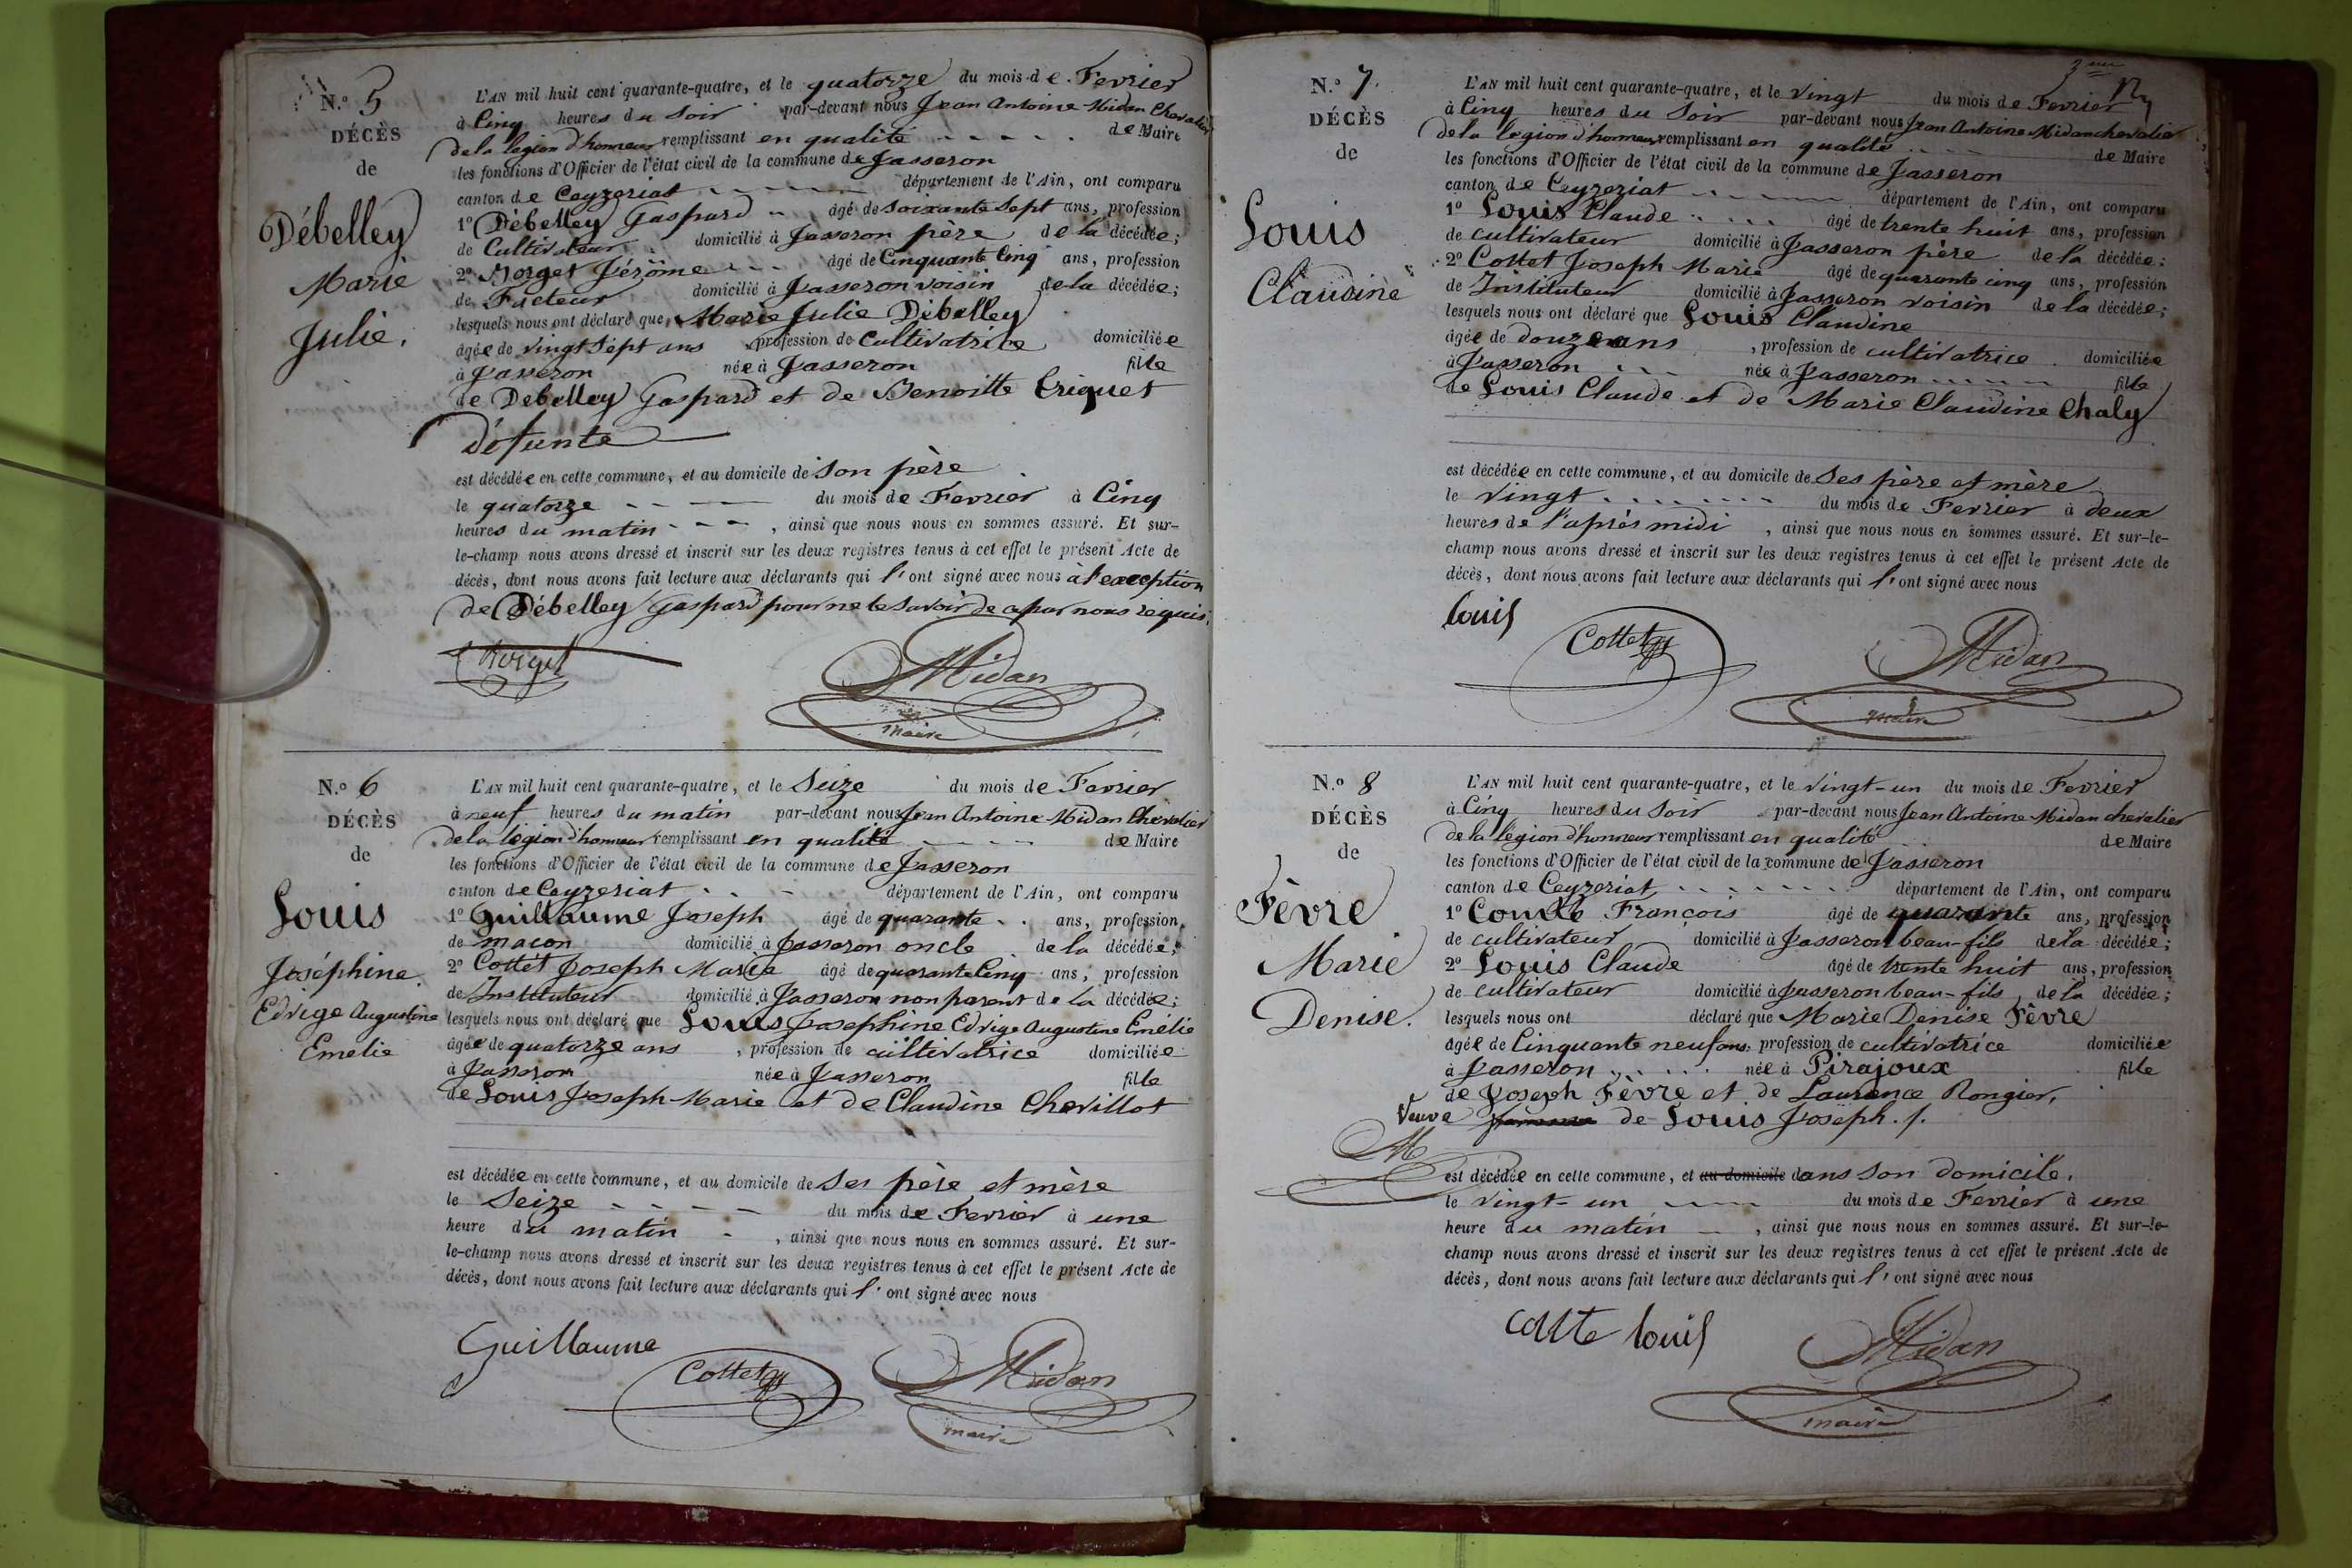 N.o 5
DÉCÈS
de
Débelley
Marie
Julie.
L'AN mil huit cent quarante-quatre, et le quatorze du mois de Fevrier
à Cinq heures du Soir par-devant nous Jean Antoine Midan Chevalier
de la légion d'honneur remplissant en qualité de Maire
les fonctions d'Officier de l'état civil de la commune de Jasseron
canton de Ceyzeriat département de l'Ain, ont comparu
1o Débelley Gaspard âgé de soixante sept ans, profession
de Cultivateur domicilié à Jasseron père de la décédée;
2o Morget Jérôme âgé de Cinquante Cinq ans, profession
de Facteur domicilié à Jasseron voisin de la décédée;
lesquels nous ont déclaré que Marie Julie Débelley
âgée de vingt sept ans profession de Cultivatrice domiciliée
à Jasseron née à Jasseron fille
de Debelley Gaspard et de Benoitte Criquet
Défunte
est décédée en cette commune, et au domicile de son père
le quatorze du mois de Fevrier à Cinq
heures du matin , ainsi que nous nous en sommes assuré. Et sur-
le-champ nous avons dressé et inscrit sur les deux registres tenus à cet effet le présent Acte de
décès, dont nous avons fait lecture aux déclarants qui l'ont signé avec nous à l'exception
de Débelley Gaspard pour ne le savoir de ce par nous requis.
Morget
Midan
maire
N.o 6
DÉCÈS
de
Louis
Joséphine
Edvige Augustine
Emelie
L'AN mil huit cent quarante-quatre, et le Seize du mois de Fevrier
à neuf heures du matin par-devant nous Jean Antoine Midan Chevalier
de la légion d'honneur remplissant en qualité de Maire
les fonctions d'Officier de l'état civil de la commune de Jasseron
canton de Ceyzeriat département de l'Ain, ont comparu
1o Guillaume Joseph âgé de quarante ans, profession
de maçon domicilié à Jasseron oncle de la décédée;
2o Cottet Joseph Marie âgé de quarante Cinq ans, profession
de Instituteur domicilié à Jasseron non parent de la décédée;
lesquels nous ont déclaré que Louis Josephine Edvige Augustine Emélie
âgée de quatorze ans , profession de cultivatrice domiciliée
à Jasseron née à Jasseron fille
de Louis Joseph Marie et de Claudine Chevillot
est décédée en cette commune, et au domicile de Ses père et mère
le Seize du mois de Fevrier à une
heure du matin , ainsi que nous nous en sommes assuré. Et sur-
le-champ nous avons dressé et inscrit sur les deux registres tenus à cet effet le présent Acte de
décès, dont nous avons fait lecture aux déclarants qui l'ont signé avec nous
Guillaume
Cottet
Midan
maire
N.o 7.
DÉCÈS
de
Louis
Claudine
L'AN mil huit cent quarante-quatre, et le vingt du mois de Fevrier
à Cinq heures du Soir par-devant nous Jean Antoine Midan chevalier
de la légion d'honneur remplissant en qualité de Maire
les fonctions d'Officier de l'état civil de la commune de Jasseron
canton de Ceyzeriat département de l'Ain, ont comparu
1o Louis Claude âgé de trente huit ans, profession
de cultivateur domicilié à Jasseron père de la décédée;
2o Cottet Joseph Marie âgé de quarante cinq ans, profession
de Instituteur domicilié à Jasseron voisin de la décédée;
lesquels nous ont déclaré que Louis Claudine
âgée de douze ans , profession de cultivatrice domiciliée
à Jasseron née à Jasseron fille
de Louis Claude et de Marie Claudine Chaly
est décédée en cette commune, et au domicile de Ses père et mère
le vingt du mois de Fevrier à deux
heures de l'après midi , ainsi que nous nous en sommes assuré. Et sur-le-
champ nous avons dressé et inscrit sur les deux registres tenus à cet effet le présent Acte de
décès, dont nous avons fait lecture aux déclarants qui l'ont signé avec nous
louis
Cottet
Midan
maire
N.o 8
DÉCÈS
de
Fèvre
Marie
Denise.
L'AN mil huit cent quarante-quatre, et le vingt-un du mois de Fevrier
à Cinq heures du Soir par-devant nous Jean Antoine Midan chevalier
de la légion d'honneur remplissant en qualité de Maire
les fonctions d'Officier de l'état civil de la commune de Jasseron
canton de Ceyzeriat département de l'Ain, ont comparu
1o Comte François âgé de quarante ans, profession
de cultivateur domicilié à Jasseron beau-fils de la décédée;
2o Louis Claude âgé de trente huit ans, profession
de cultivateur domicilié à Jasseron beau-fils de la décédée;
lesquels nous ont déclaré que Marie Denise Fèvre
âgée de Cinquante neuf ans, profession de cultivatrice domiciliée
à Jasseron née à Pirajoux fille
de Joseph Fèvre et de Laurence Rongier,
Veuve femme de Louis Joseph.
M
est décédée en cette commune, et au domicile dans son domicile.
le vingt-un du mois de Fevrier à une
heure du matin , ainsi que nous nous en sommes assuré. Et sur-le-
champ nous avons dressé et inscrit sur les deux registres tenus à cet effet le présent Acte de
décès, dont nous avons fait lecture aux déclarants qui l'ont signé avec nous
louis
Midan
maire